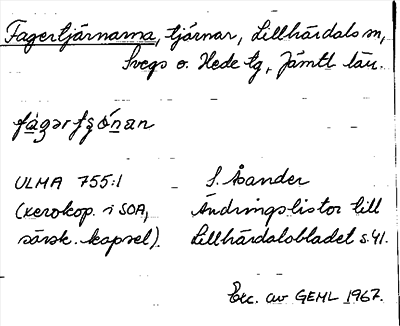 Fagertjärnarna, tjärnar, Lillhärdals sn,
Svegs o. Hede tg, Jämtl. län.
fágərtjǫ́nan
ULMA 755:1 S. Åsander
(xerokop. i SOA, Ändringslistor till
särsk. kapsel). Lillhärdalsbladet s. 41.
Exc. av GEHL 1967.